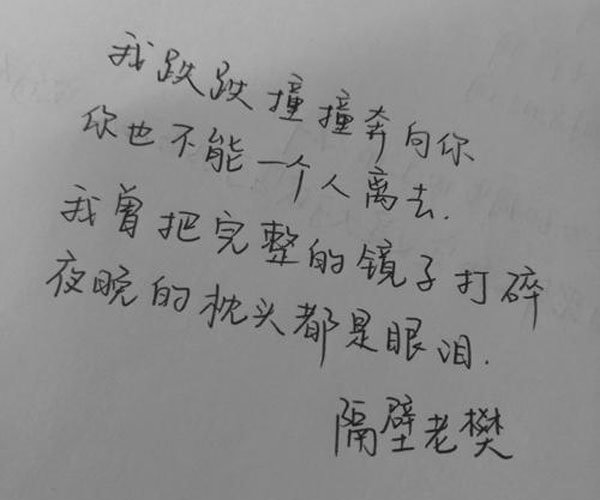 我跌跌撞撞奔向你
你也不能一个人离去.
我曾把完整的镜子打碎
夜晚的枕头都是眼泪.
隔壁老樊